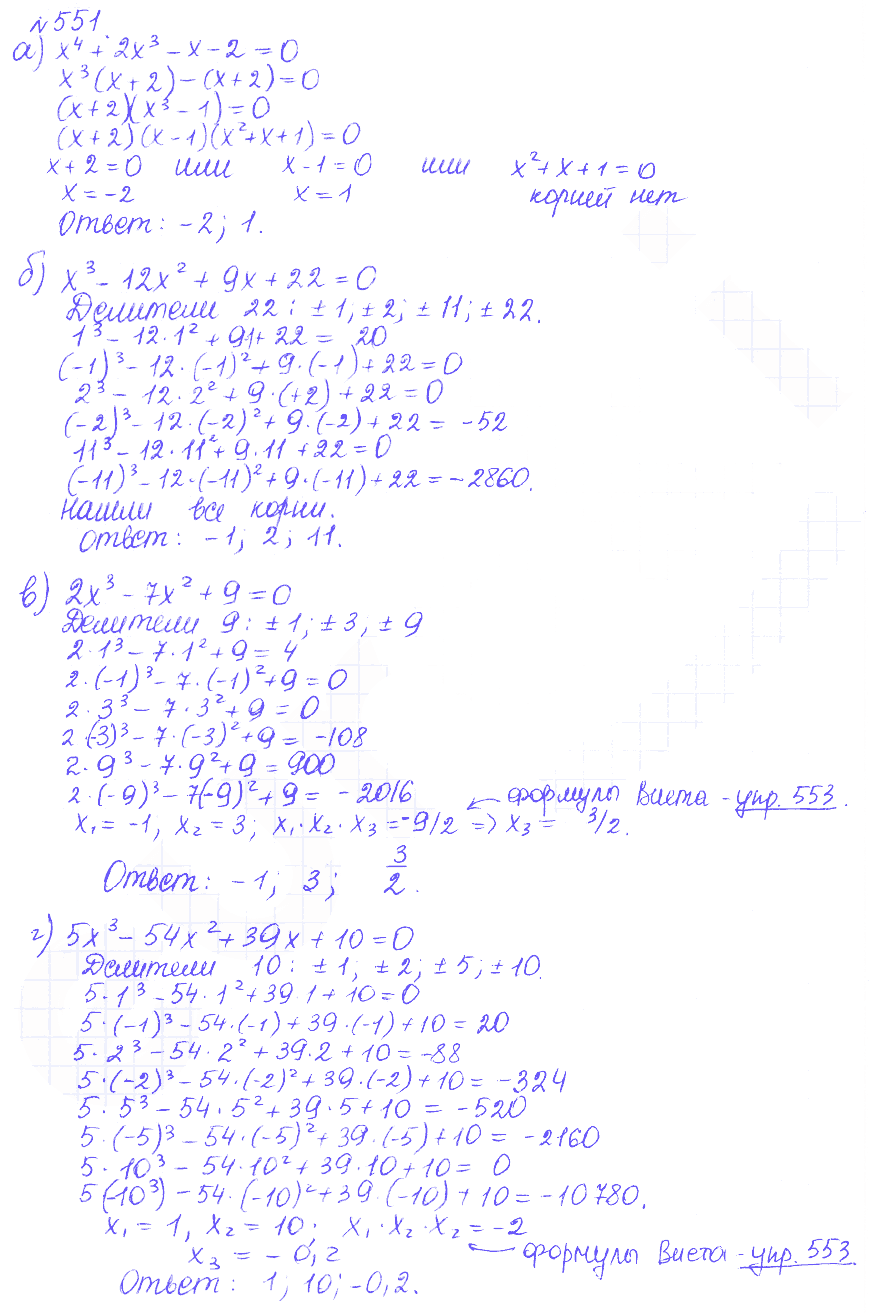 №551.
а) x⁴ + 2x³ − x − 2 = 0
x³(x + 2) − (x + 2) = 0
(x + 2)(x³ − 1) = 0
(x + 2)(x − 1)(x² + x + 1) = 0
x + 2 = 0 или x − 1 = 0 или x² + x + 1 = 0
x = −2 x = 1 корней нет
Ответ: −2; 1.
б) x³ − 12x² + 9x + 22 = 0
Делители 22: ±1; ±2; ±11; ±22.
1³ − 12·1² + 9·1 + 22 = 20
(−1)³ − 12·(−1)² + 9·(−1) + 22 = 0
2³ − 12·2² + 9·(+2) + 22 = 0
(−2)³ − 12·(−2)² + 9·(−2) + 22 = −52
11³ − 12·11² + 9·11 + 22 = 0
(−11)³ − 12·(−11)² + 9·(−11) + 22 = −2860.
Нашли все корни.
Ответ: −1; 2; 11.
в) 2x³ − 7x² + 9 = 0
Делители 9: ±1; ±3, ±9
2·1³ − 7·1² + 9 = 4
2·(−1)³ − 7·(−1)² + 9 = 0
2·3³ − 7·3² + 9 = 0
2·(−3)³ − 7·(−3)² + 9 = −108
2·9³ − 7·9² + 9 = 900
2·(−9)³ − 7(−9)² + 9 = −2016
x₁ = −1, x₂ = 3; x₁·x₂·x₃ = −9/2 => x₃ = 3/2. ← формулы Виета - упр. 553.
Ответ: −1; 3; 3/2.
г) 5x³ − 54x² + 39x + 10 = 0
Делители 10: ±1; ±2; ±5; ±10.
5·1³ − 54·1² + 39·1 + 10 = 0
5·(−1)³ − 54·(−1) + 39·(−1) + 10 = 20
5·2³ − 54·2² + 39·2 + 10 = −88
5·(−2)³ − 54·(−2)² + 39·(−2) + 10 = −324
5·5³ − 54·5² + 39·5 + 10 = −520
5·(−5)³ − 54·(−5)² + 39·(−5) + 10 = −2160
5·10³ − 54·10² + 39·10 + 10 = 0
5(−10³) − 54·(−10)² + 39·(−10) + 10 = −10780.
x₁ = 1, x₂ = 10; x₁·x₂·x₂ = −2
x₃ = −0,2 ← формулы Виета - упр. 553.
Ответ: 1; 10; −0,2.